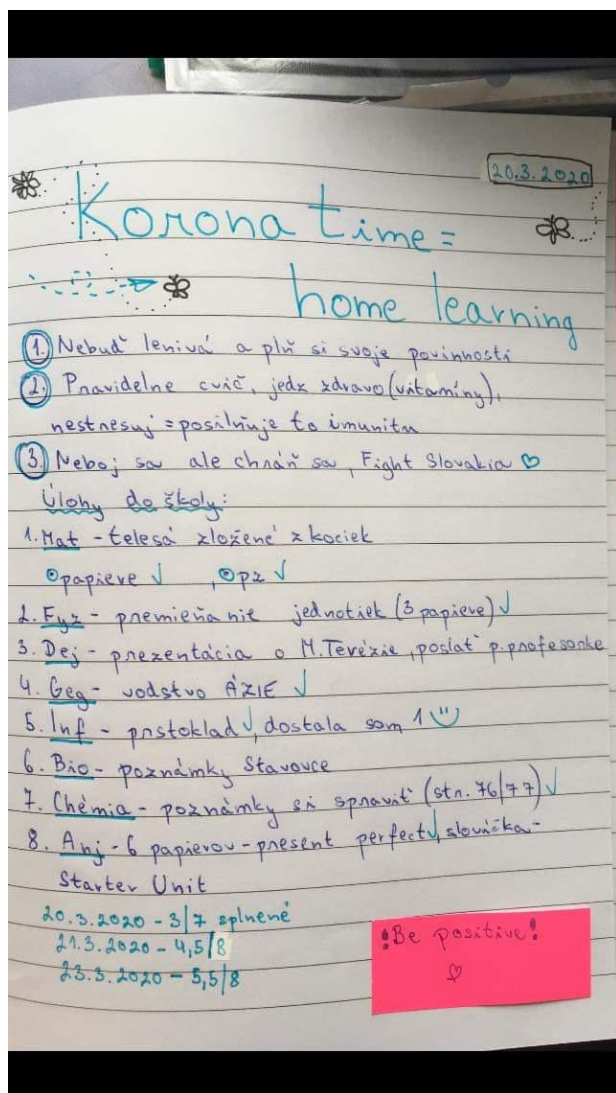 20.3.2020
Korona time =
home learning
1. Nebuď lenivá a plň si svoje povinnosti
2. Pravidelne cvič, jedz zdravo (vitamíny),
nestresuj = posilňuje to imunitu
3. Neboj sa ale chráň sa, Fight Slovakia ♡
Úlohy do školy:
1. Mat - telesá zložené z kociek
⊙papiere √ , ⊙pz √
2. Fyz - premieňanie jednotiek (3 papiere) √
3. Dej - prezentácia o M.Terézie, poslať p.profesorke
4. Geg - vodstvo ÁZIE √
5. Inf - prstoklad √, dostala som 1 ☺
6. Bio - poznámky Stavovce
7. Chémia - poznámky si spraviť (str. 76/77) √
8. Anj - 6 papierov - present perfect √, slovíčka -
Starter Unit
20.3.2020 - 3/7 splnené
21.3.2020 - 4,5/8
23.3.2020 - 5,5/8
!Be positive!
♡